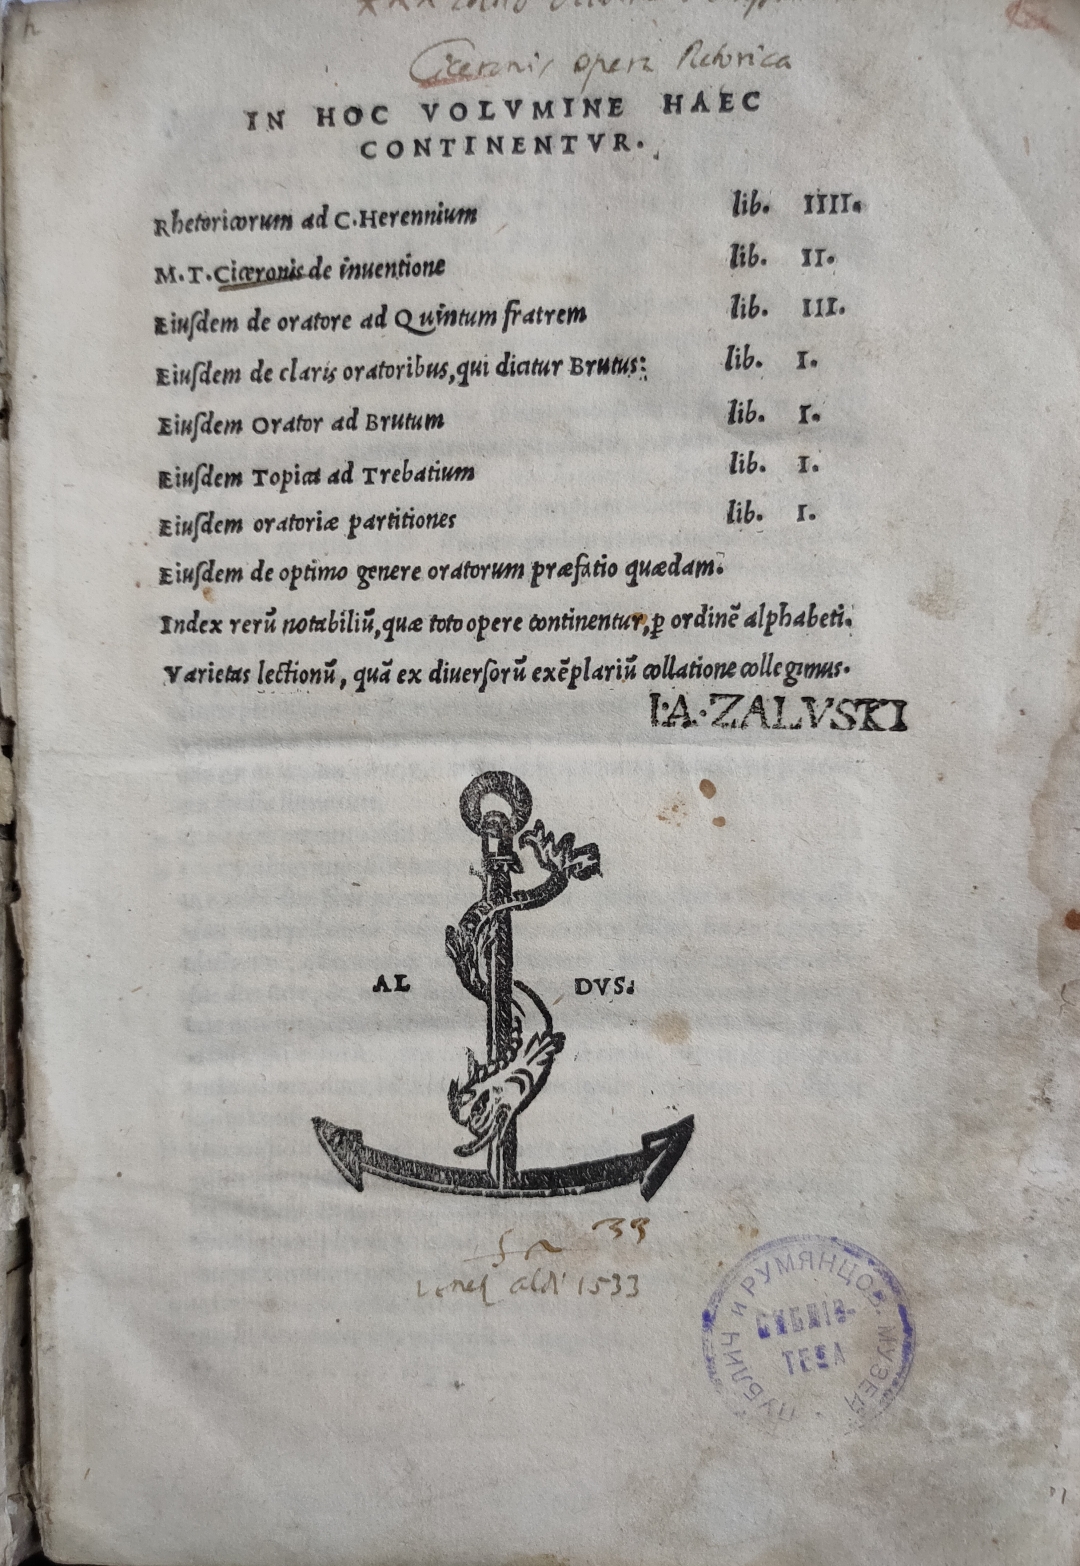 Ciceronis opera Retorica
IN HOC VOLVMINE HAEC
CONTINENTVR.
Rhetoricorum ad C. Herennium lib. IIII.
M. T. Ciceronis de inuentione lib. II.
Eiuſdem de oratore ad Quintum fratrem lib. III.
Eiuſdem de claris oratoribus, qui dicitur Brutus: lib. I.
Eiuſdem Orator ad Brutum lib. I.
Eiuſdem Topica ad Trebatium lib. I.
Eiuſdem oratoriæ partitiones lib. I.
Eiuſdem de optimo genere oratorum præfatio quædam.
Index rerũ notabiliũ, quæ toto opere continentur, ꝑ ordinẽ alphabeti.
Varietas lectionũ, quã ex diuerſorũ exẽplariũ collatione collegimus.
I.A. ZALVSKI
AL DVS.
39
aldi 1533
ПУБЛИЧ И РУМЯНЦОВ. МУЗЕД
БИБЛІО-
ТЕКА